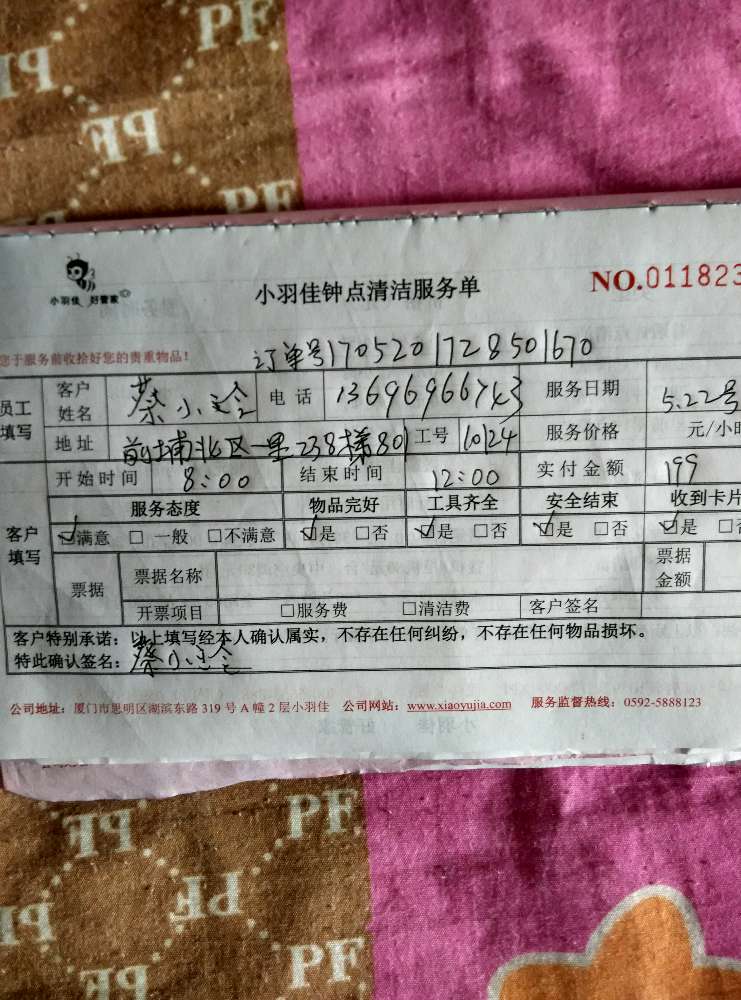 PF
PF
PF
PF
小羽佳 好管家
小羽佳钟点清洁服务单
NO.011823
您于服务前收拾好您的贵重物品！
订单号1705201728501670
员工填写 客户姓名 蔡小玲 电话 13696966743 服务日期 5.22号
地址 前埔北区一里238梯801 工号 1024 服务价格 元/小时
开始时间 8:00 结束时间 12:00 实付金额 199
客户填写 服务态度 物品完好 工具齐全 安全结束 收到卡片
☑满意 □一般 □不满意 ☑是 □否 ☑是 □否 ☑是 □否 ☑是 □否
票据 票据名称 票据金额
开票项目 □服务费 □清洁费 客户签名
客户特别承诺：以上填写经本人确认属实，不存在任何纠纷，不存在任何物品损坏。
特此确认签名：蔡小玲
公司地址：厦门市思明区湖滨东路 319 号 A 幢 2 层小羽佳 公司网站：www.xiaoyujia.com 服务监督热线：0592-5888123
PF
PF
PF
PF
PF
PF